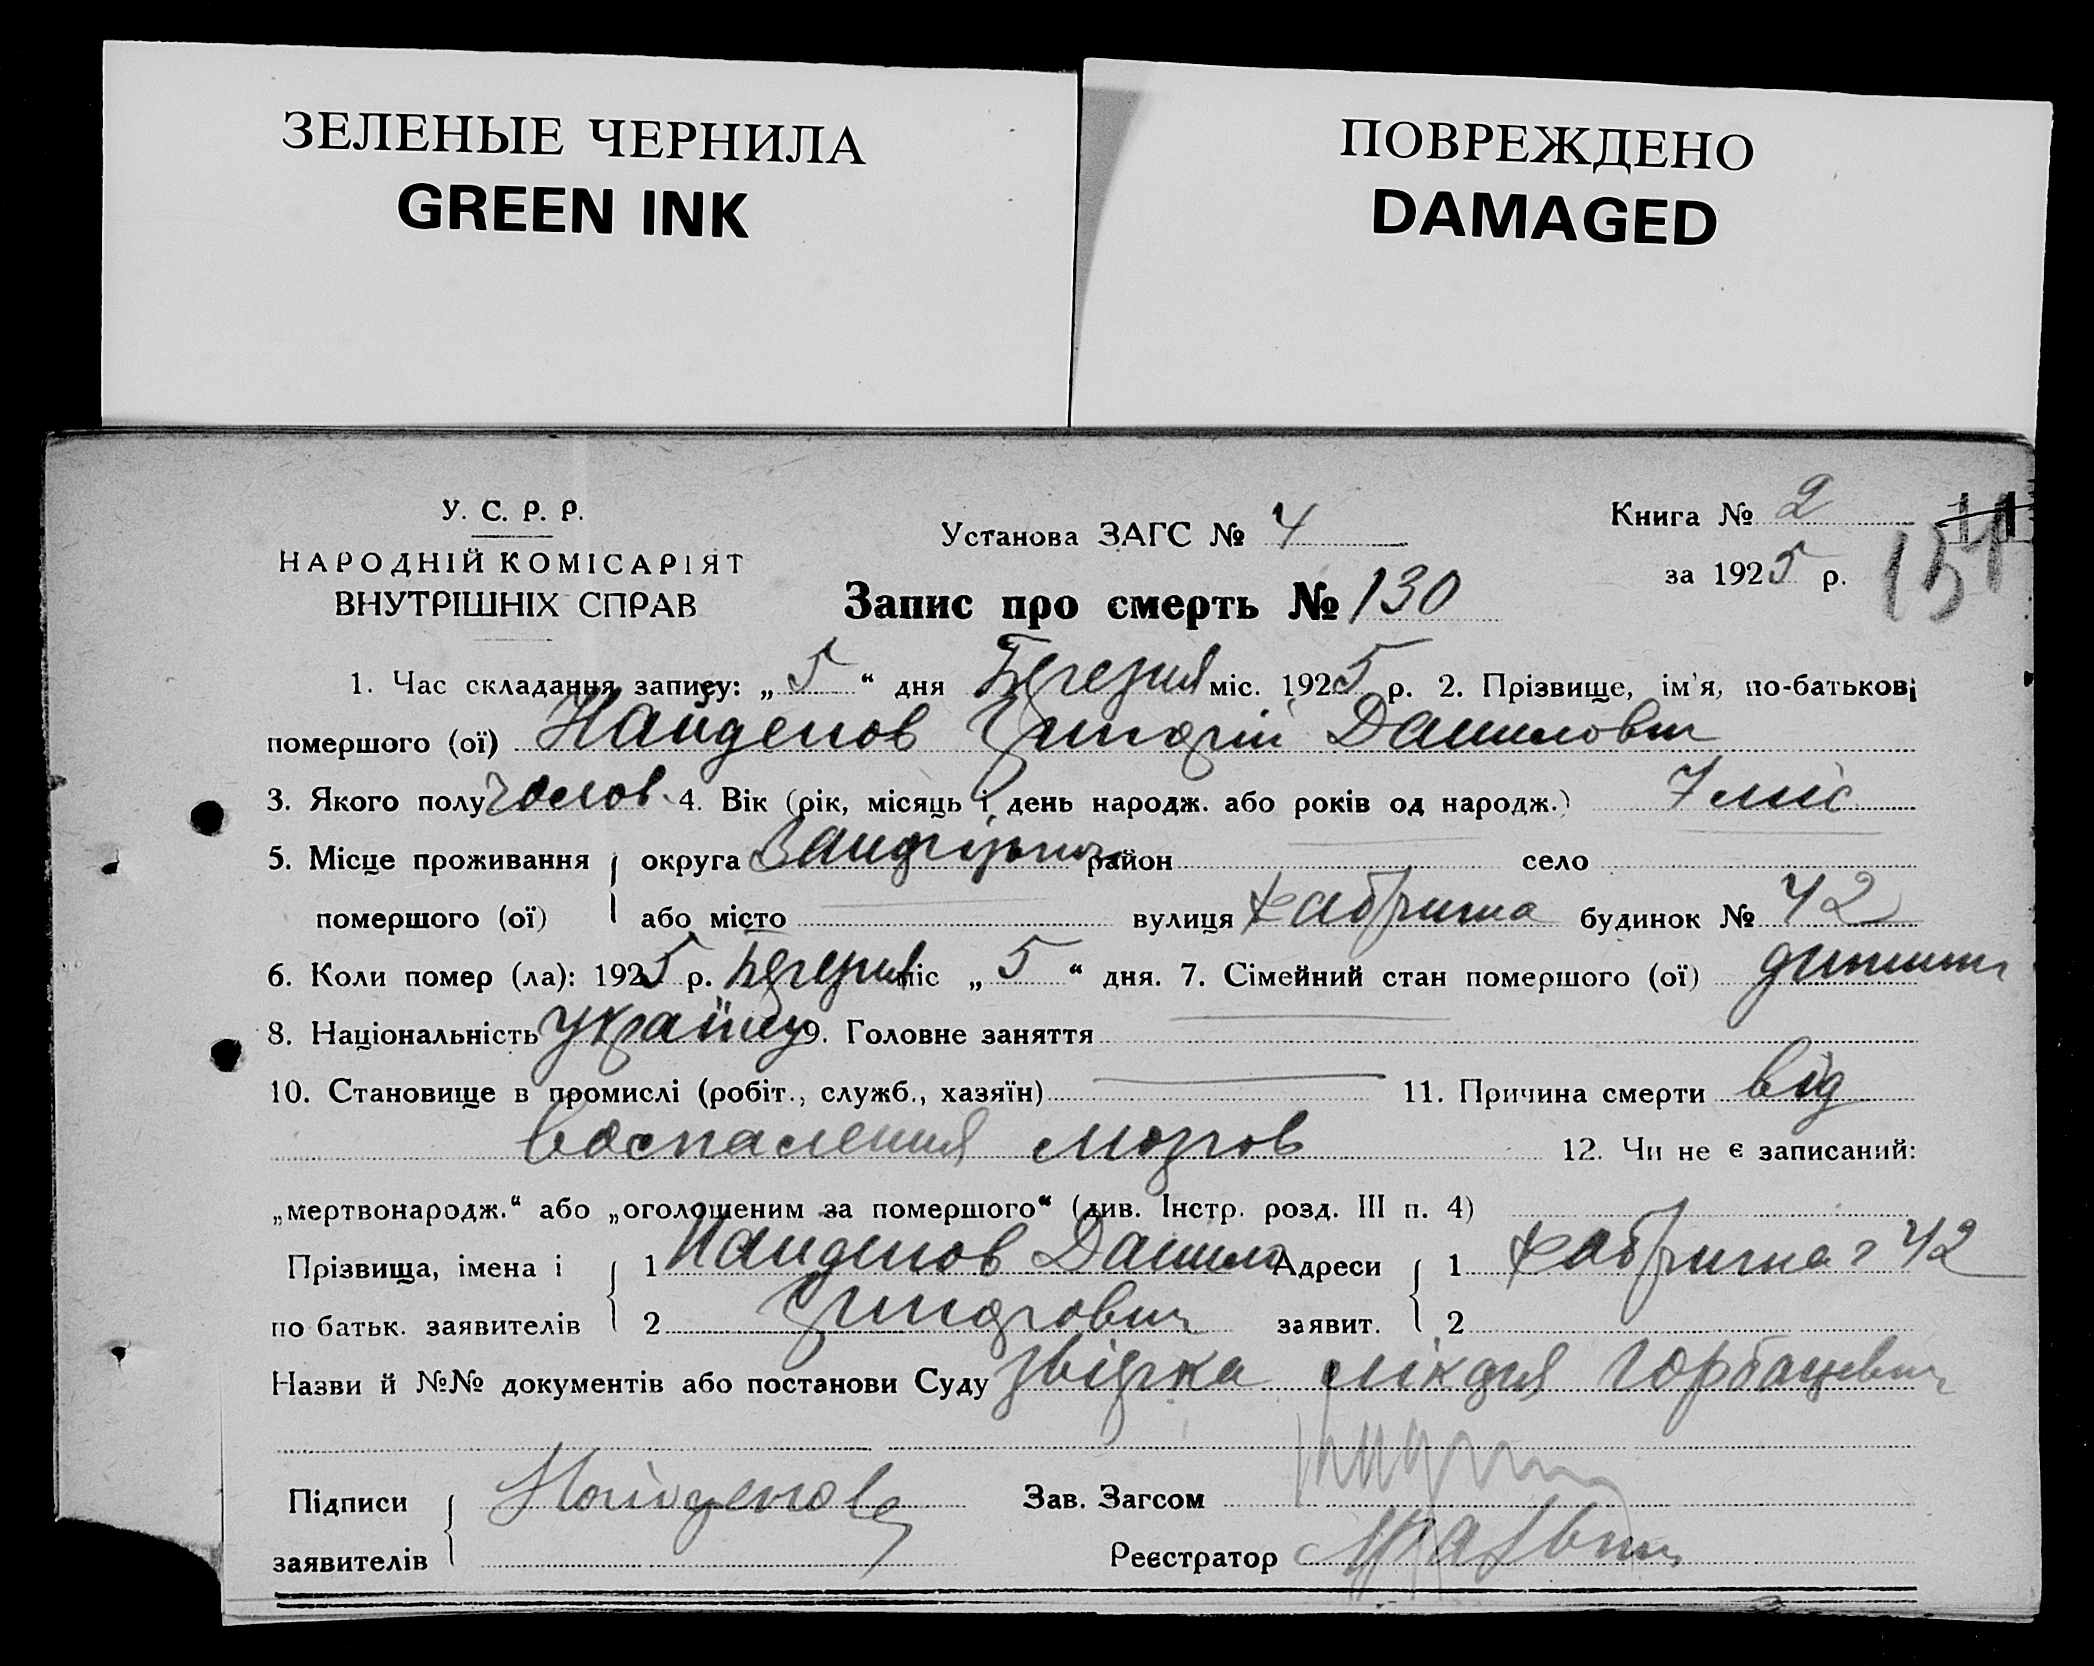 ЗЕЛЕНЫЕ ЧЕРНИЛА
GREEN INK
ПОВРЕЖДЕНО
DAMAGED
У. С. Р. Р.
НАРОДНІЙ КОМІСАРІЯТ
ВНУТРІШНІХ СПРАВ
Установа ЗАГС № 4
Запис про смерть № 130
Книга № 2
за 1925 р.
151
1. Час складання запису: „5“ дня Березня міс. 1925 р. 2. Прізвище, ім'я, по-батькові
помершого (ої) Найденов Григорій Данилович
3. Якого полу чолов. 4. Вік (рік, місяць і день народж. або років од народж.) 7 міс
5. Місце проживання округа район село
помершого (ої) або місто вулиця Фабрична будинок № 42
6. Коли помер (ла): 1925 р. Березня міс „5“ дня. 7. Сімейний стан помершого (ої) дитина
8. Національність україн. 9. Головне заняття
10. Становище в промислі (робіт., служб., хазяїн) 11. Причина смерти від
воспаления мозгов 12. Чи не є записаний:
„мертвонародж.“ або „оголошеним за помершого“ (див. Інстр. розд. III п. 4)
Прізвища, імена і 1 Найденов Данило Адреси 1 Фабрична 42
по батьк. заявителів 2 Григорович заявит. 2
Назви й №№ документів або постанови Суду Звідка лікаря Горбацевич
Підписи Найденов Зав. Загсом
заявителів Реєстратор